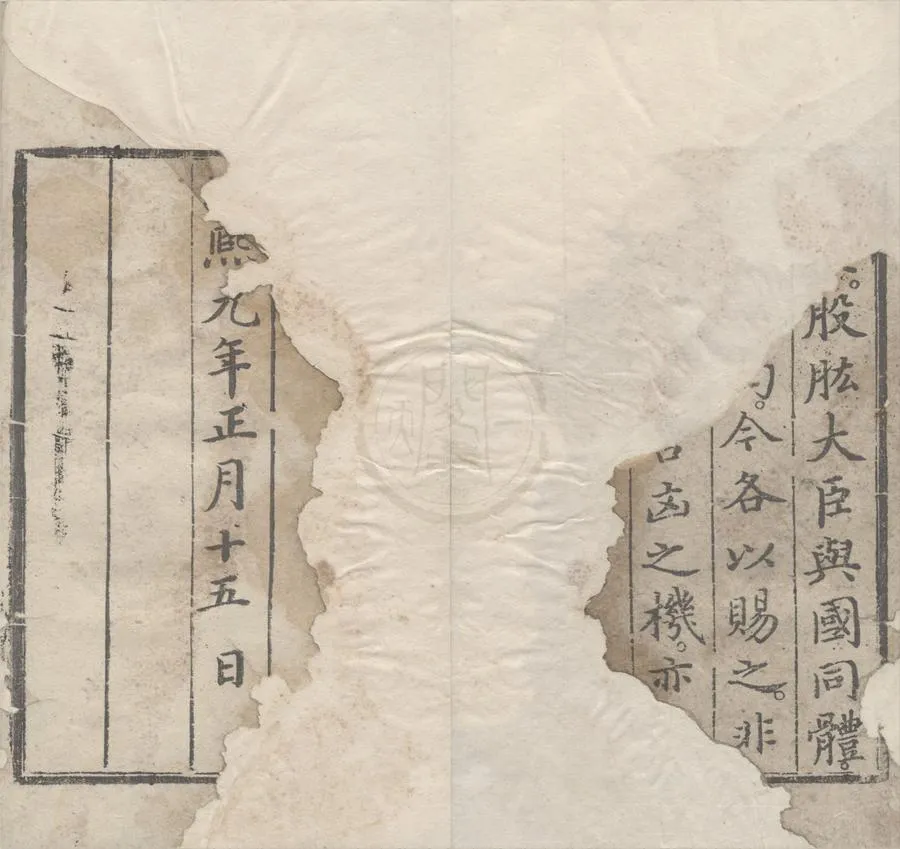 股肱大臣與國同體。
今各以賜之。非
凶之機。亦
熙元年正月十五日